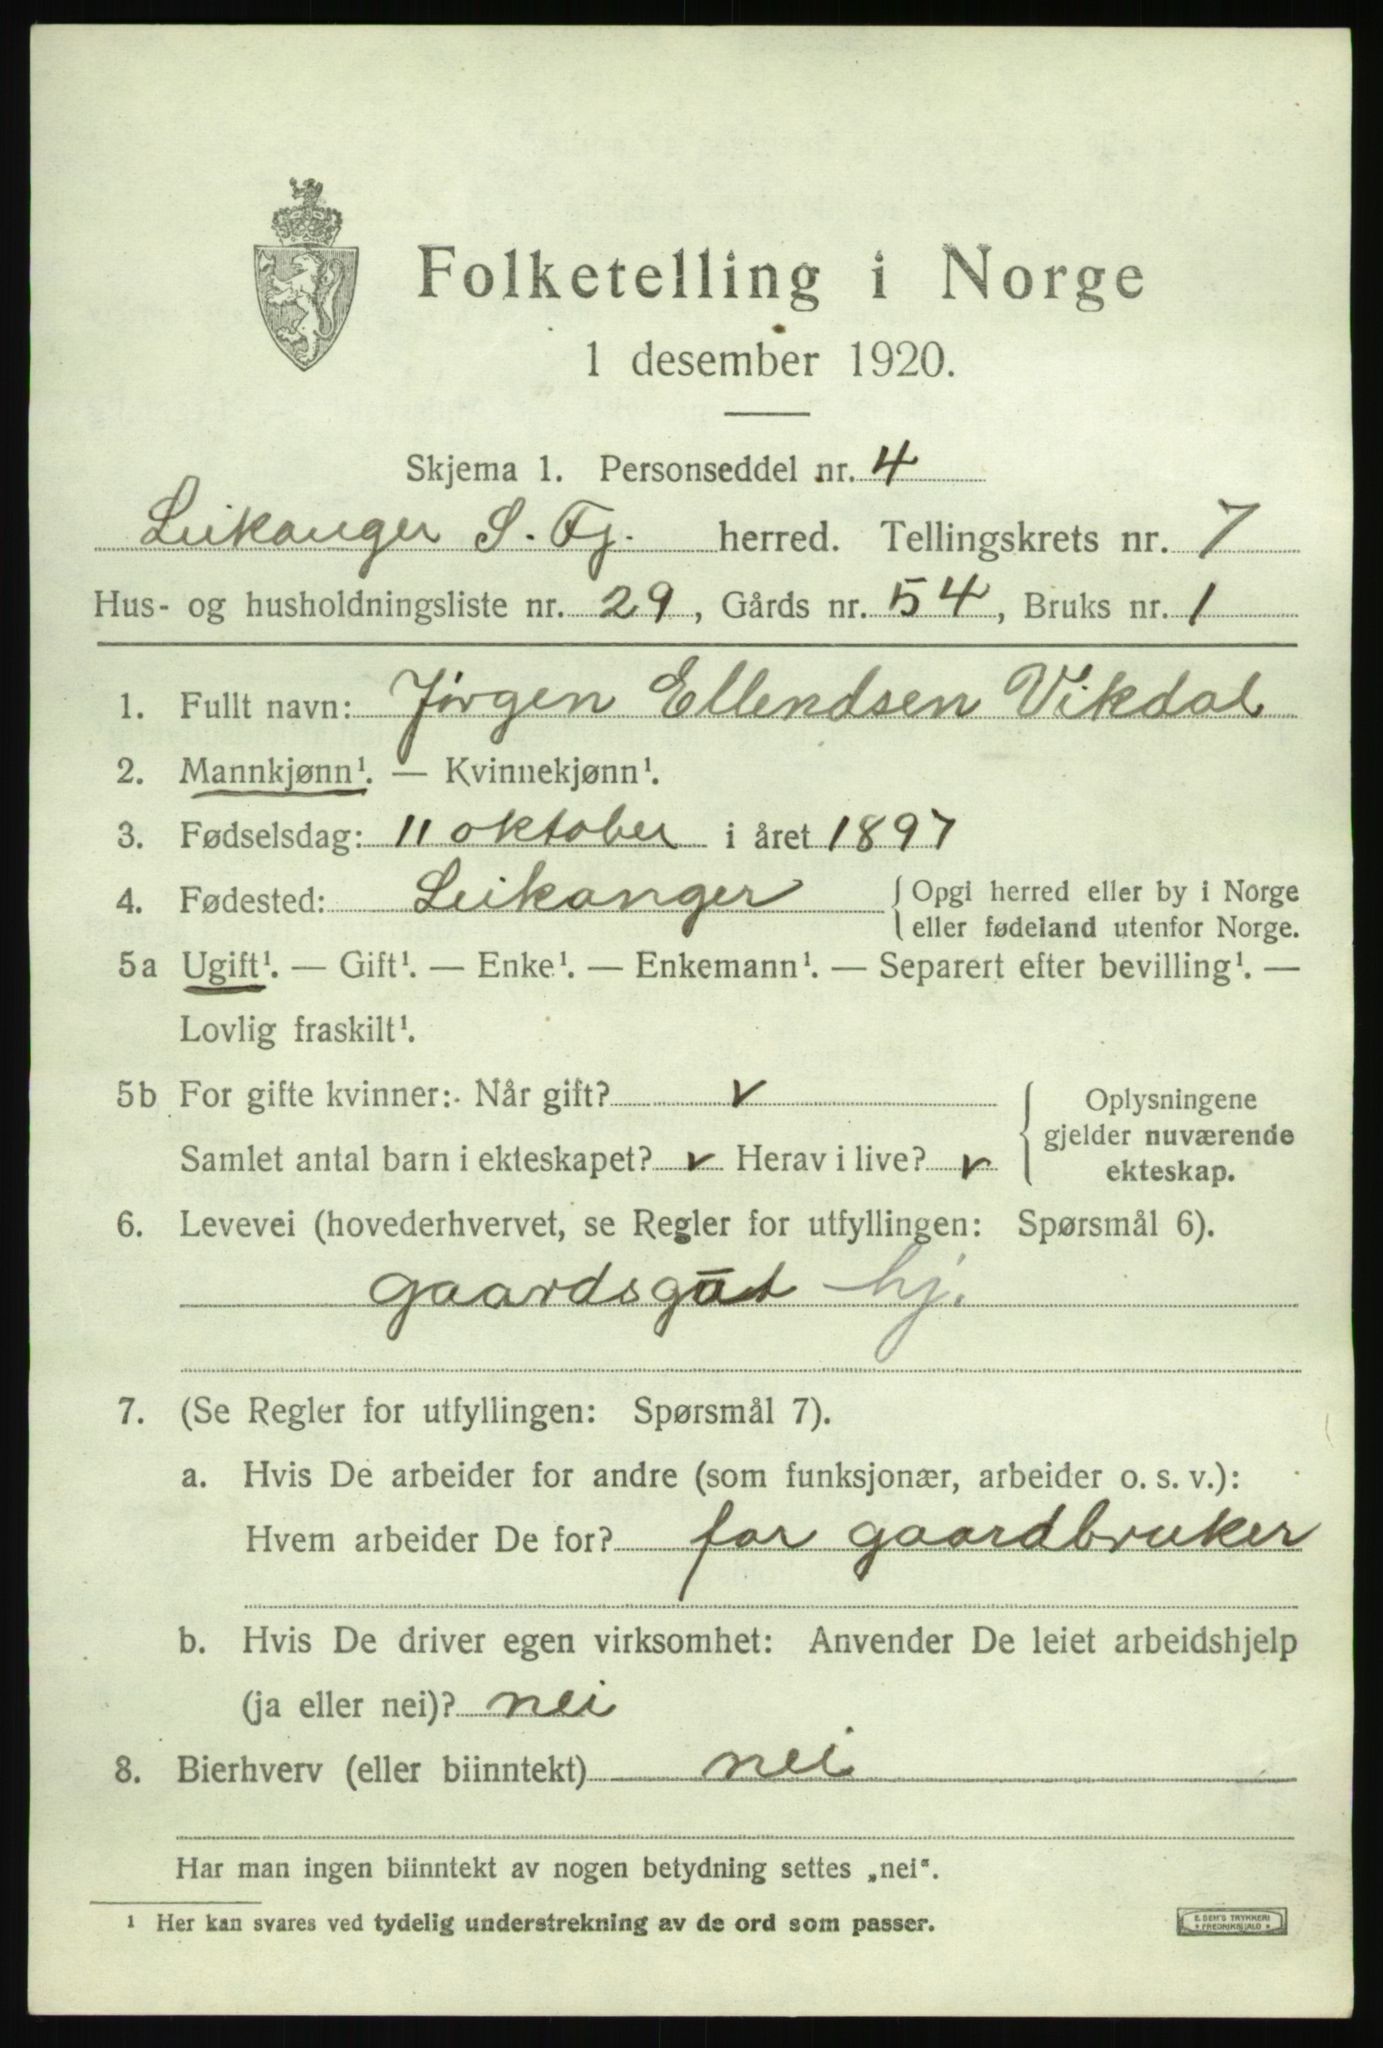 Folketelling i Norge
1 desember 1920.
Skjema 1. Personseddel nr. 4
Leikanger S. Fj. herred. Tellingskrets nr. 7
Hus- og husholdningsliste nr. 29, Gårds nr. 54, Bruks nr. 1
1. Fullt navn: Jørgen Ellendsen Vikdal
2. Mannkjønn¹. — Kvinnekjønn¹.
3. Fødselsdag: 11 oktober i året 1897
4. Fødested: Leikanger { Opgi herred eller by i Norge
eller fødeland utenfor Norge.
5a Ugift¹. — Gift¹. — Enke¹. — Enkemann¹. — Separert efter bevilling¹. —
Lovlig fraskilt¹.
5b For gifte kvinner: Når gift? v
Samlet antal barn i ekteskapet? v Herav i live? v
{ Oplysningene
gjelder nuværende
ekteskap.
6. Levevei (hovederhvervet, se Regler for utfyllingen: Spørsmål 6).
gaardsgut hj.
7. (Se Regler for utfyllingen: Spørsmål 7).
a. Hvis De arbeider for andre (som funksjonær, arbeider o. s. v.):
Hvem arbeider De for? far gaardbruker
b. Hvis De driver egen virksomhet: Anvender De leiet arbeidshjelp
(ja eller nei)? nei
8. Bierhverv (eller biinntekt) nei
Har man ingen biinntekt av nogen betydning settes „nei“.
¹ Her kan svares ved tydelig understrekning av de ord som passer.
E. SEM'S TRYKKERI
FREDRIKSHALD